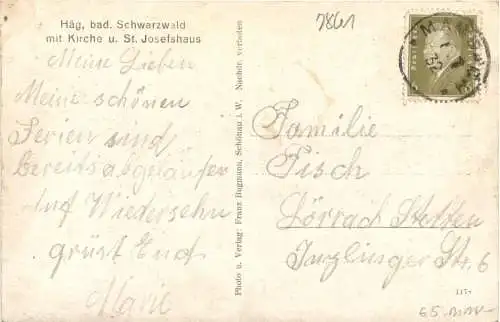 Häg, bad. Schwarzwald
mit Kirche u. St. Josefshaus
Meine Lieben
Meine schönen
Ferien sind
bereits abgelaufen
Auf Wiedersehn
grüst Euch
Marie
Photo u. Verlag: Franz Bugmann, Schönau i. W. Nachdr. verboten
7861
32
Familie
Fisch
Lörrach Stetten
Inzlinger Str. 6
65